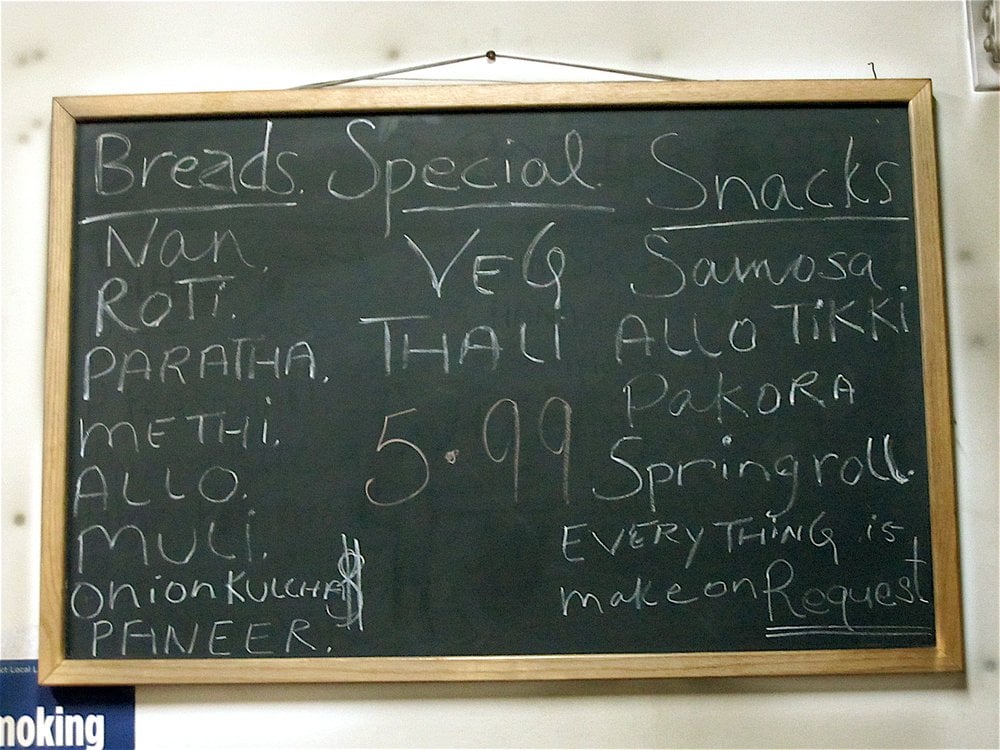 Breads.
Nan.
ROTi.
PARATHA.
METHi.
ALLO.
MULi.
onion KULCHA
PANEER.
Special.
VEG
THALi
5.99
Snacks
Samosa
ALLO TiKKi
PakoRA
Spring roll.
EVERYTHING is
make on Request
ct Local L
moking